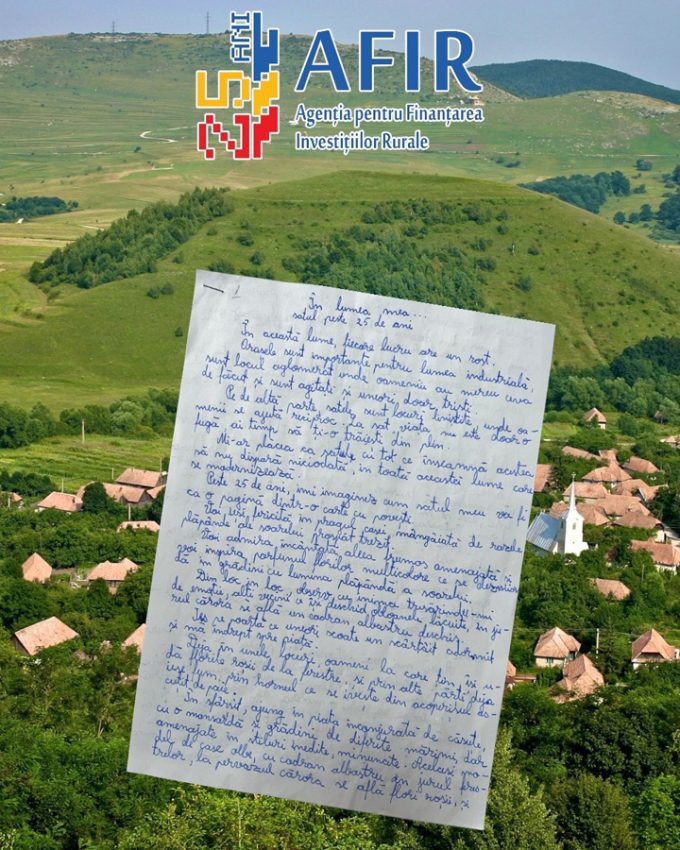 ANI
25
AFIR
Agenția pentru Finanțarea
Investițiilor Rurale
1
În lumea mea...
satul peste 25 de ani
În această lume, fiecare lucru are un rost.
Orașele sunt importante pentru lumea industrială,
sunt locul aglomerat unde oamenii au mereu ceva
de făcut și sunt agitați și uneori, doar triști.
Pe de altă parte, satele sunt locuri liniștite, unde oa-
menii se ajută reciproc. La sat, viața nu este doar o
fugă, ai timp să ți-o trăiești din plin.
Mi-ar plăcea ca satele cu tot ce înseamnă acestea
să nu dispară niciodată, în toată această lume care
se modernizează.
Peste 25 de ani, îmi imaginez cum satul meu va fi
ca o pagină dintr-o carte cu povești.
Voi ieși, fericită în pragul casei, mângâiată de razele
plăpânde ale soarelui proaspăt trezit.
Voi admira, încântată aleea frumos amenajată și
voi inspira parfumul florilor multicolore ce se deschid
dă în grădinii cu lumina plăpândă a soarelui.
Din loc în loc, observ cu inima tresărindu-mi
de emoție, alți vecini ce își deschid obloanele lăcuite, în ju-
rul cărora se află un cadran albastru deschis.
Ies pe poarta ce uneori scoate un scârțâit adormit
și mă îndrept spre piață.
Deja în unele locuri, oamenii la care țin, își u-
dă florile roșii de la ferestre, și prin alte părți deja
iese fum, prin hornul ce se ivește din acoperișul as-
cuțit de paie.
În sfârșit, ajung în piața înconjurată de căsuțe,
cu o mansardă și grădini de diferite mărimi, dar
amenajate în stiluri inedite, minunate. Același mo-
del de case albe, cu cadran albastru în jurul feres-
trelor, la pervazul cărora se află flori roșii, și